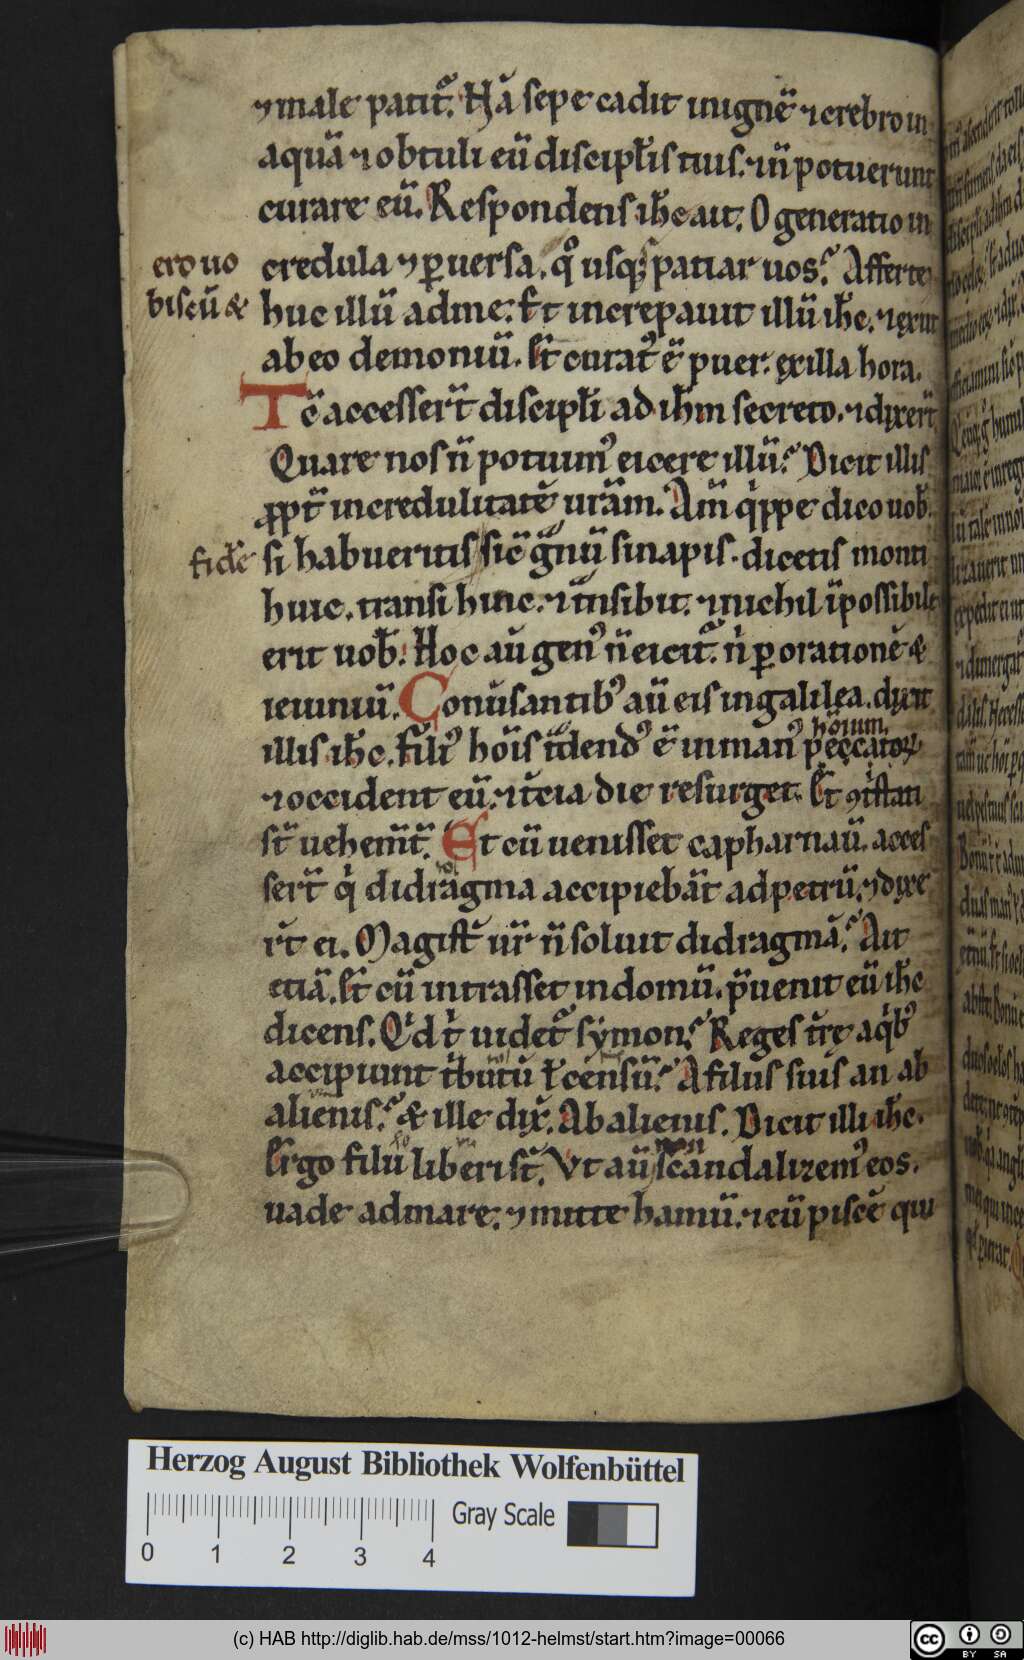 ⁊ male patit᷑. Hā sepe cadit in ignē ⁊ crebro in
aquā ⁊ obtuli eū discipl̄is tuis. ⁊ n̄ potuerunt
curare eū. Respondens ih̄c ait. O generatio in
ero uo
credula ⁊ ꝑuersa. q̊ usq; patiar uos? Afferte
biscū &
huc illū ad me. Et increpauit illū ih̄c. ⁊ exiit
ab eo demoniū. & curat᷒ ē puer. ex illa hora.
Tc̄ accesser̄t discipl̄i ad ih̄m secreto. ⁊ dixer̄t
Quare nos n̄ potuim᷒ eicere illū? Dicit illis
ꝓpt̄ incredulitatē ur̄am. Am̄ qippe dico uob̄.
fidē
si habueritis sic̄ g̊nū sinapis. dicetis monti
huic. transi hinc. ⁊ t̊nsibit. ⁊ nichil īpossibile
erit uob̄. Hoc aū gen᷒ n̄ eicit᷑. n̊ ꝑ orationē &
ieiuniū. Conūsantib᷒ aū eis in galilea. dixit
illis ih̄c. Fili᷒ hōis t̊dend᷒ ē in man᷒ peccatoꝝ
hōium.
⁊ occident eū. ⁊ t̄cia die resurget. Et ꝯt̊stati
st̄ uehem̄t̄. Et cū uenisset capharnaū. acces
ser̄t q̊ didragma accipiebāt ad petrū. ⁊ dixe
r̄t ei. Magist̄ ur̄ n̄ soluit didragmā? Ait
etiā. Et cū intrasset in domū. p̄uenit eū ih̄c
dicens. Qd t̊ uidet᷑ symon? Reges t̄rę a qib᷒
accipiunt t̊butū ł censū? A filiis suis an ab
alienis? & ille dix̄. Ab alienis. Dicit illi ih̄c.
Ergo filii liberi st̄. Vt aū non scandalizem᷒ eos.
uade ad mare. ⁊ mitte hamū. ⁊ eū piscē qui
Herzog August Bibliothek Wolfenbüttel
Gray Scale
0 1 2 3 4
(c) HAB http://diglib.hab.de/mss/1012-helmst/start.htm?image=00066
cc BY SA